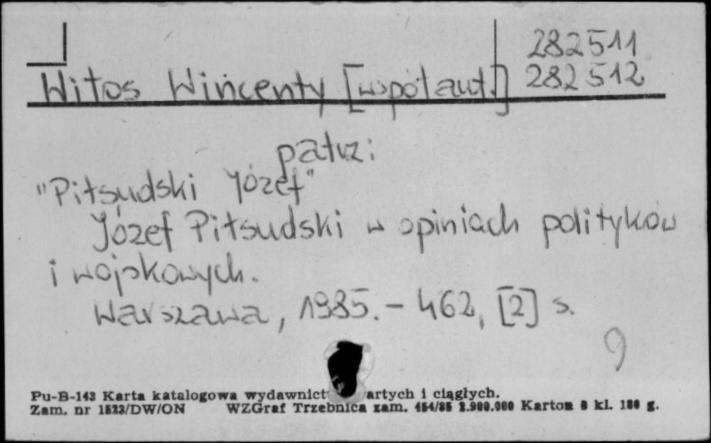 282511
Witos Wincenty [współaut.] 282512
patrz:
"Piłsudski Józef"
Józef Piłsudski w opiniach polityków
i wojskowych.
Warszawa, 1985. - 462, [2] s.
9
Pu-B-143 Karta katalogowa wydawnict artych i ciągłych.
Zam. nr 1523/DW/ON WZGraf Trzebnica zam. 454/85 2.900.000 Karton 8 kl. 180 g.